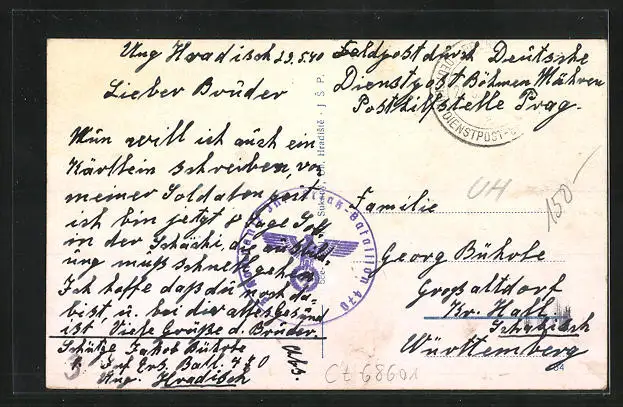 Ung Hradisch 29.5.40
Lieber Brüder
Nun will ich auch ein
Kärtlein schreiben, von
meiner Soldatenzeit
ich bin jetzt 8 Tage Sol-
in der
muß schnell gehen
Ich hoffe daß du noch da-
bist u. bei dir alles Gesund
ist Viele Grüße d. Brüder.
Schütze Jakob Bührle
Inf. Ers. Batl. 470
Ung. Hradisch
Feldpost durch Deutsche
Dienstpost Böhmen Mähren
Posthilfstelle Prag.
DIENSTPOST
Familie
Georg Bührle
Großaltdorf
Kr. Hall
Schwäbisch
Württemberg
Hradiště - J Š P.
Bataillon 470
UH
150-
Cz 68601